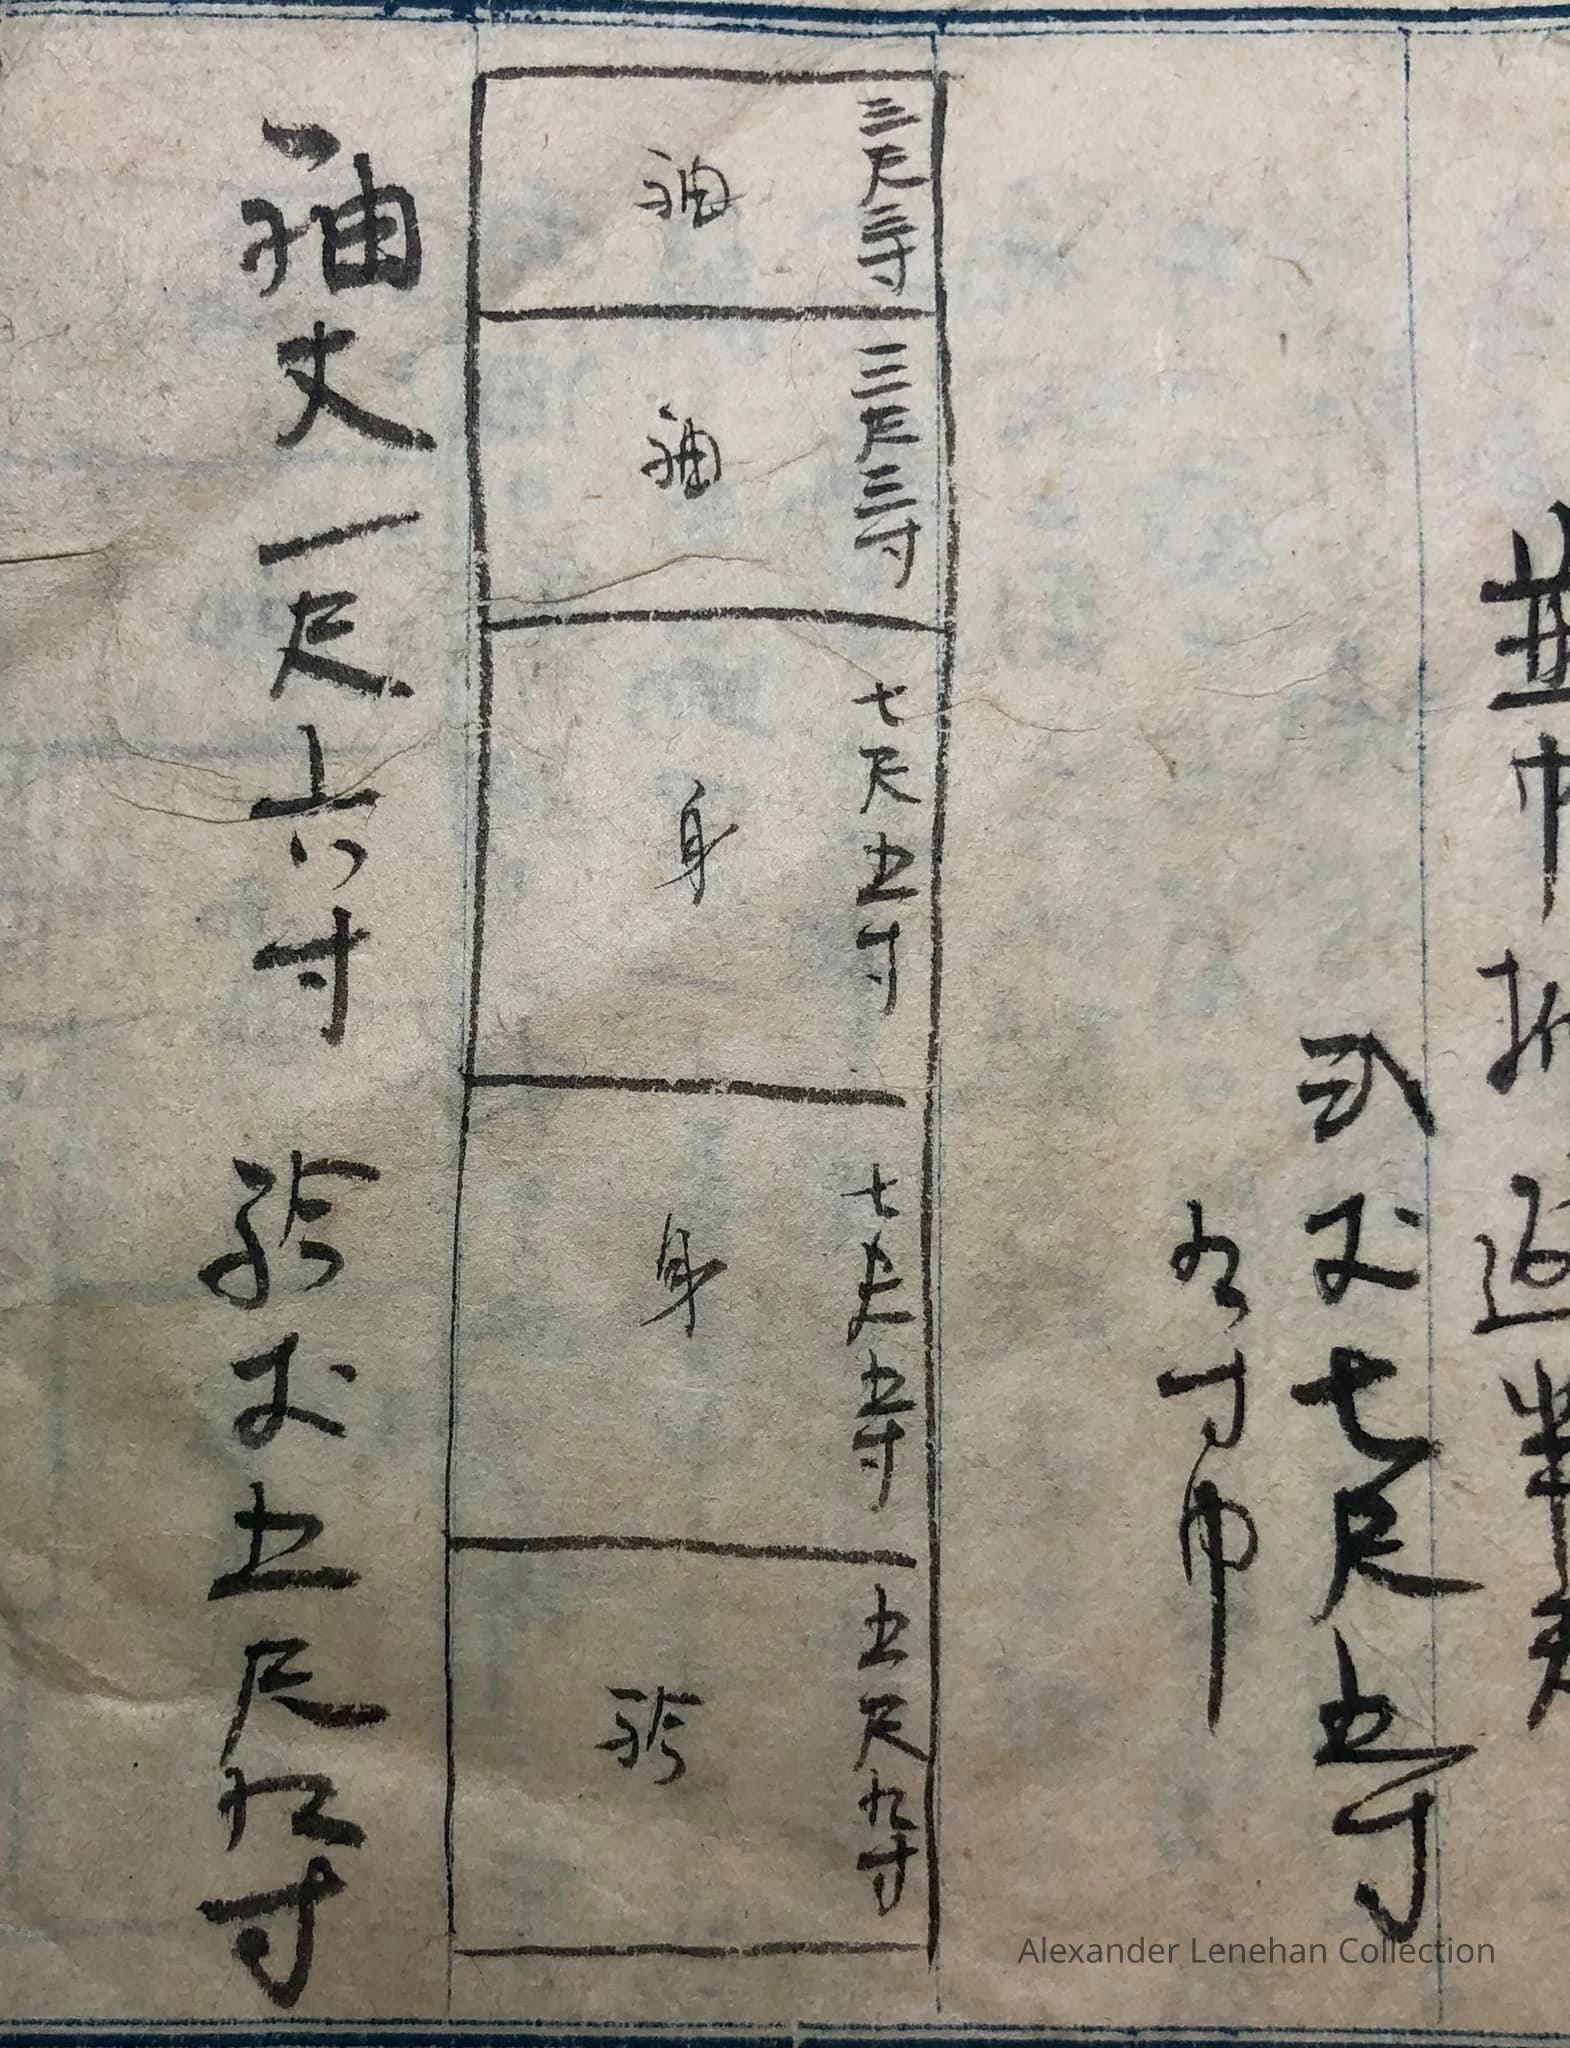 並巾折返
弐丈七尺五寸
九寸巾
三尺三寸
袖
三尺三寸
袖
七尺五寸
身
七尺五寸
身
五尺九寸
衿
袖丈一尺六寸 衿丈五尺九寸
Alexander Lenehan Collection